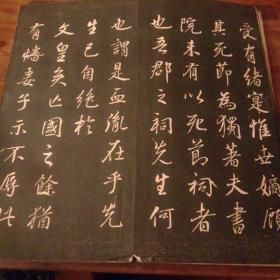 受有緒寔惟世嫡顧
其死節為獨著夫書
院未有以死節祠者
也吾郡之祠先生何
也謂是血胤在乎先
生已自絕於
文皇矣亡國之餘猶
有幡妻子示不辱此